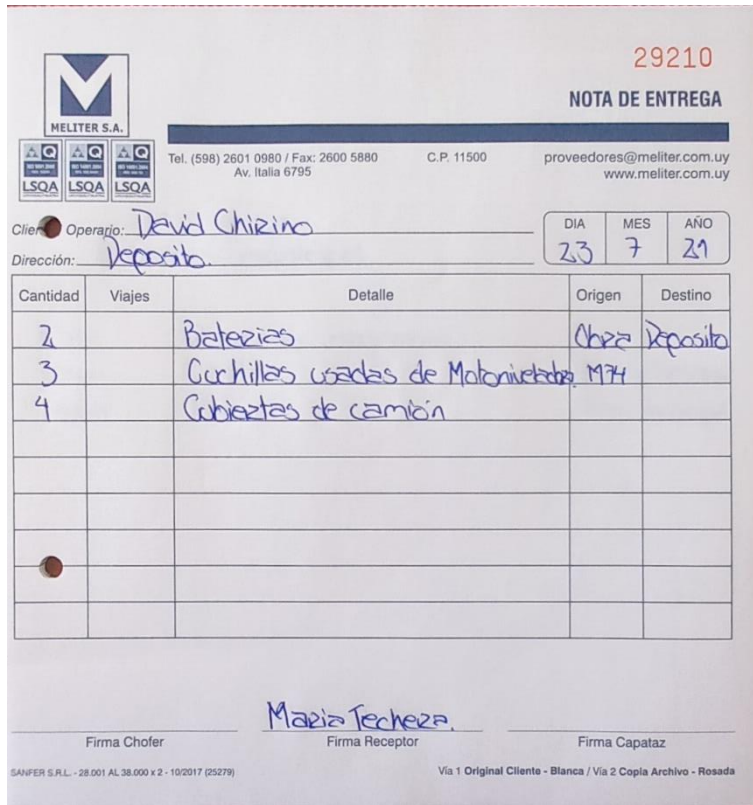 29210
NOTA DE ENTREGA
M
MELITER S.A.
LSQA LSQA LSQA
Tel. (598) 2601 0980 / Fax: 2600 5880 C.P. 11500 proveedores@meliter.com.uy
Av. Italia 6795 www.meliter.com.uy
Operario: David Chirino
DIA MES AÑO
23 7 21
Dirección: Deposito.
Cantidad Viajes Detalle Origen Destino
2 Baterias Obra Deposito
3 Cuchillas usadas de Motoniveladora M74
4 Cubiertas de camión
Maria Techera.
Firma Chofer Firma Receptor Firma Capataz
SANFER S.R.L. - 28.001 AL 38.000 x 2 - 10/2017 (25279) Vía 1 Original Cliente - Blanca / Vía 2 Copia Archivo - Rosada